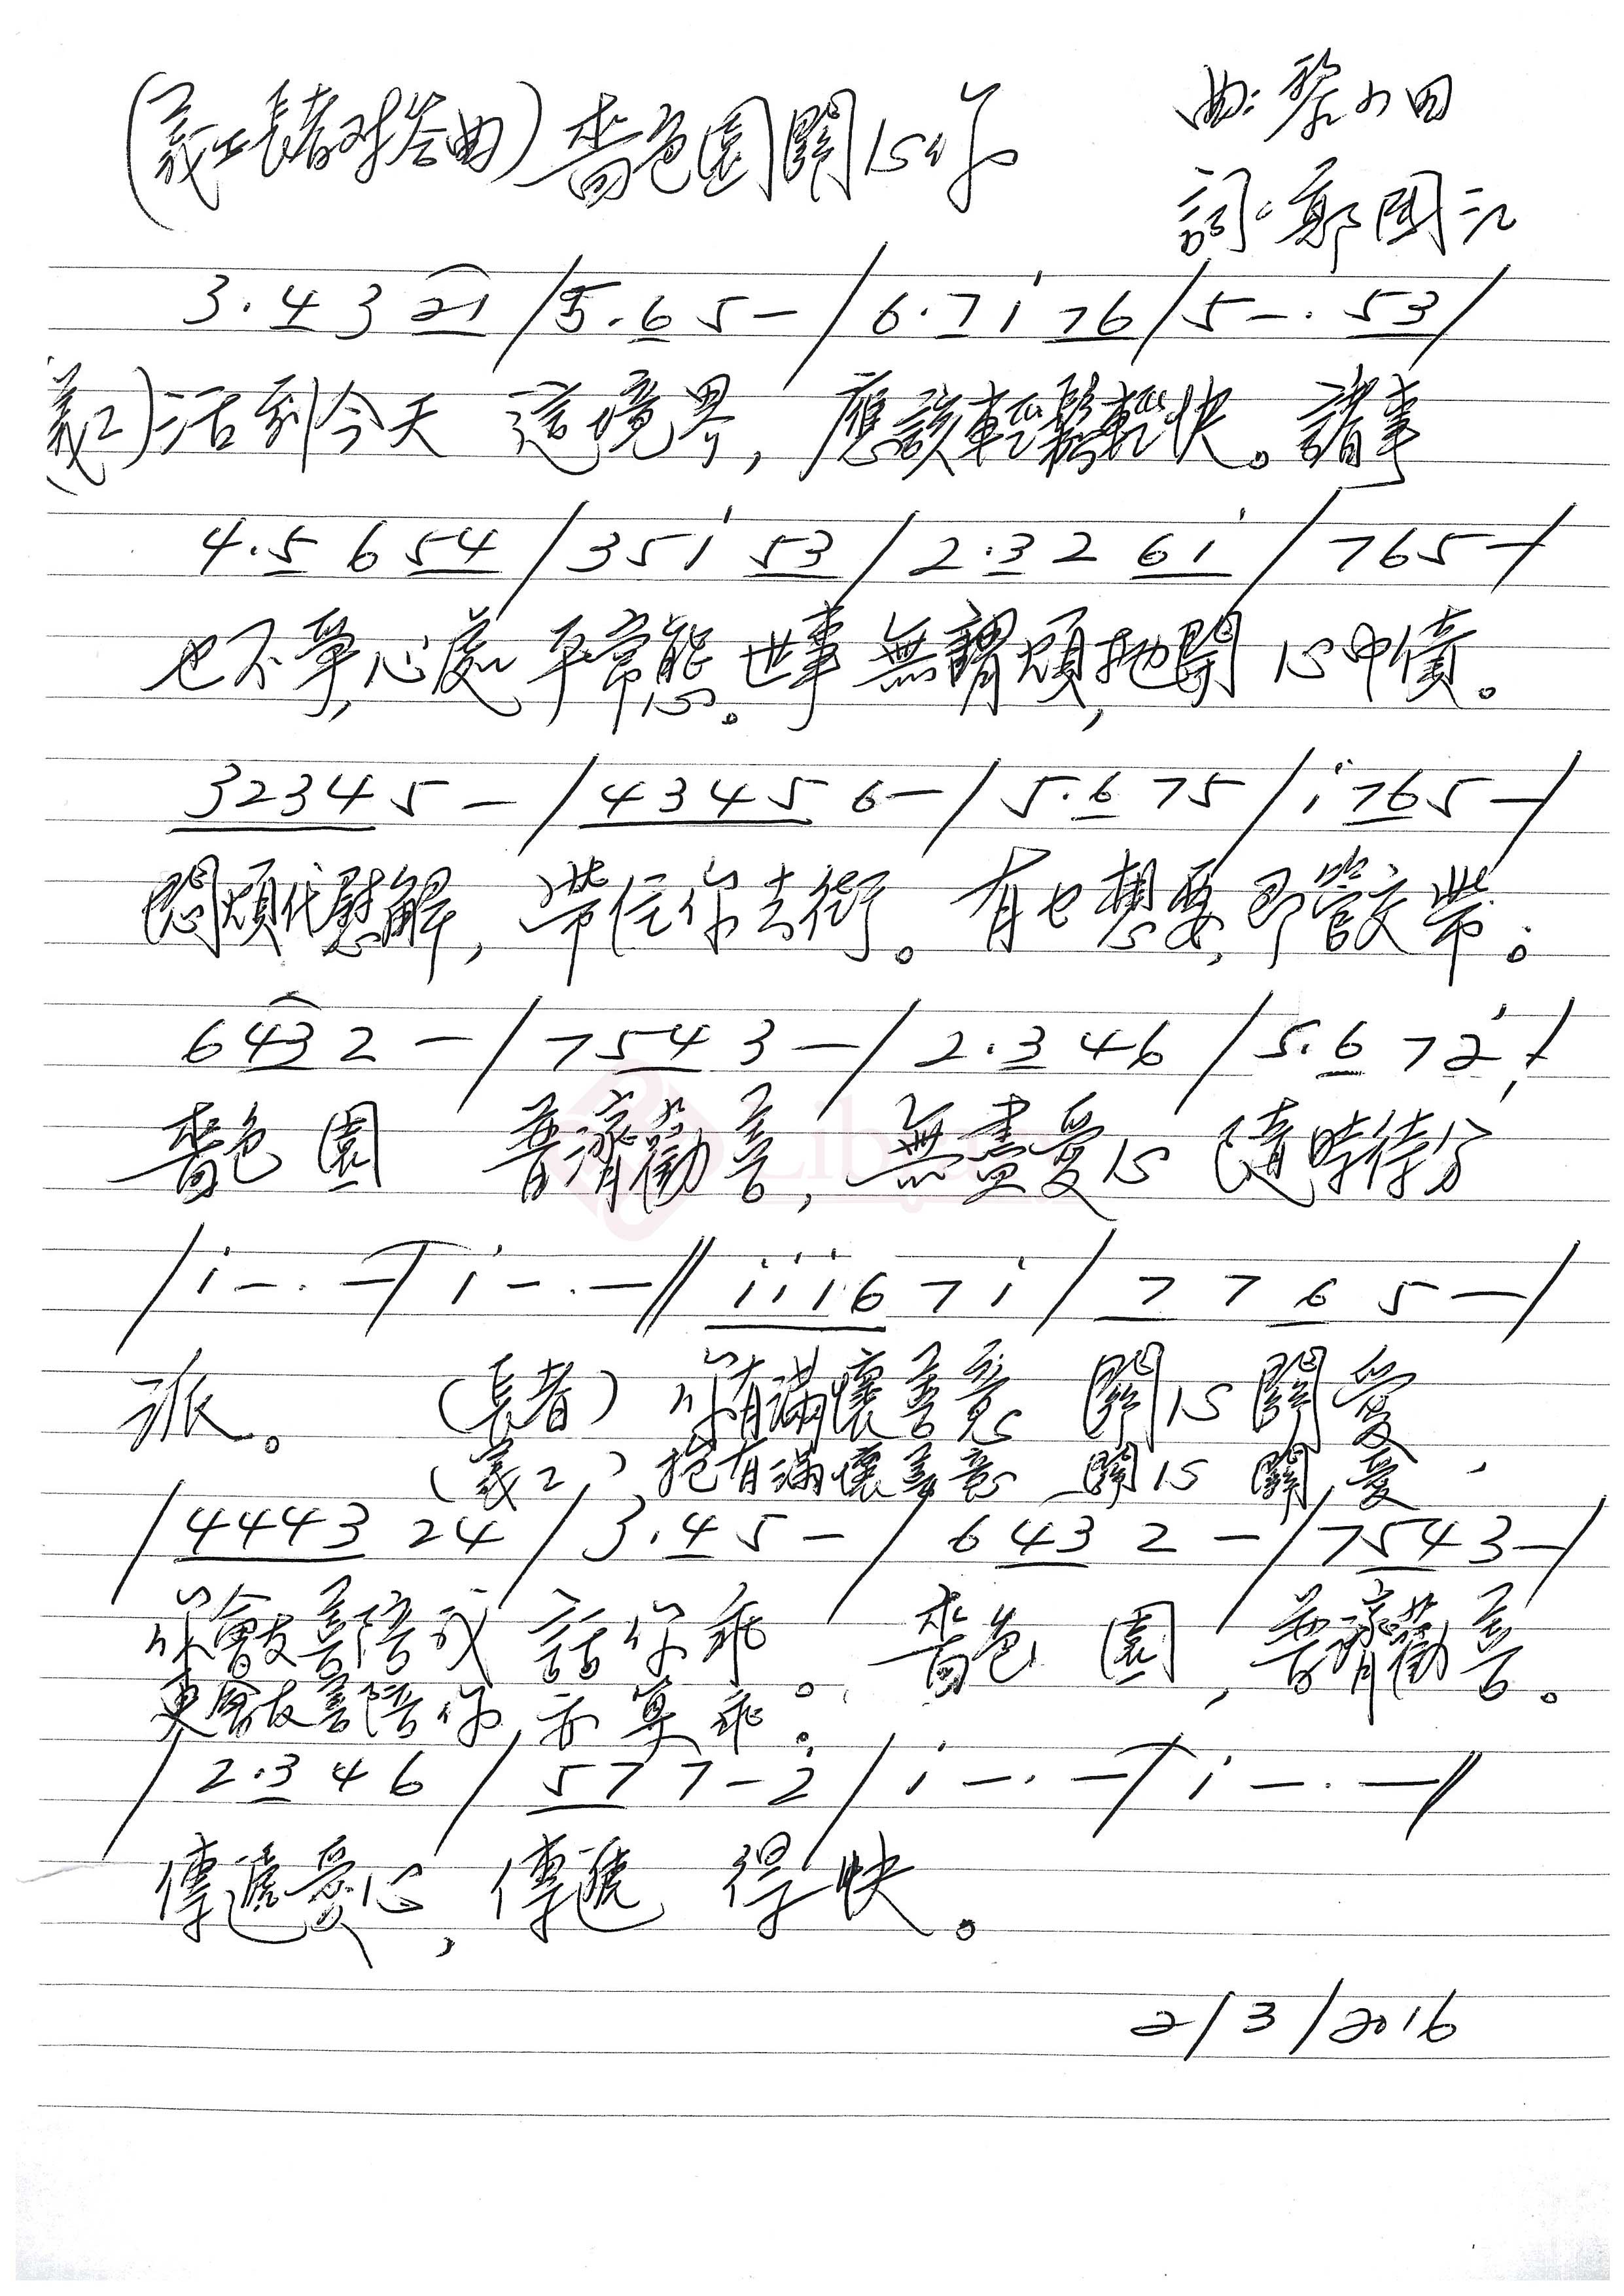 (義工長者对答曲) 嗇色園關心你
曲:黎小田
詞:鄭國江
3.4 3 21 / 5.6 5 - / 6.7 i 76 / 5 - . 53 /
義工) 活到今天 這境界, 應該輕鬆輕快。諸事
4.5 6 54 / 3 5 i 53 / 2.3 2 6i / 7 6 5 - /
也不爭, 心處平常態。世事無謂煩, 抛開心中債。
3234 5 - / 4345 6 - / 5.6 7 5 / i 76 5 - /
悶煩代慰解, 帶住你去街。有乜想要, 即管交帶。
6 43 2 - / 7 54 3 - / 2.3 4 6 / 5.6 7 2 /
嗇色園 普濟勸善, 無盡愛心 隨時待分
/ i - . - / i - . - // iii6 7 i / 7 7 6 5 - /
派。 (長者) 你有滿懷善意 關心關愛
(義工) 抱有滿懷善意 關心關愛,
/ 4443 2 4 / 3.4 5 - / 6 43 2 - / 7 54 3 - /
你會友善陪我 話你乖。嗇色園, 普濟勸善。
更會友善陪你, 亦算乖。
/ 2.3 4 6 / 57 7 - 2 / i - . - / i - . - //
傳遞愛心, 傳遞得快。
2/3/2016